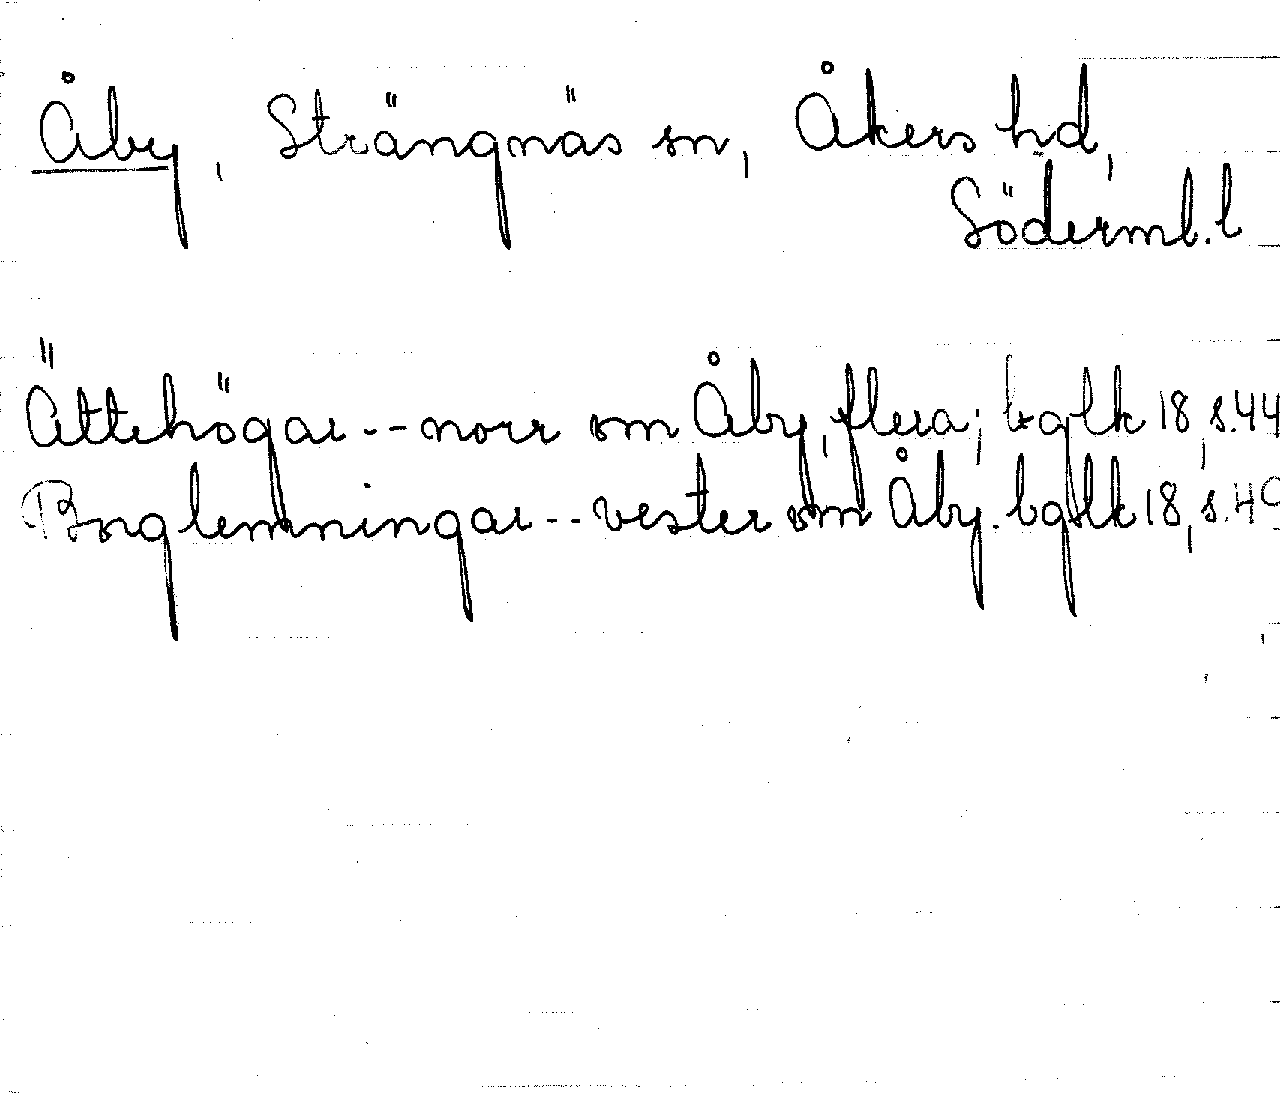 Åby, Strängnäs sn, Åkers hd,
Söderml. l
Ättehögar -- norr om Åby, flera; bglk 18, s. 44
Borglemningar -- vester om Åby. bglk 18, s.